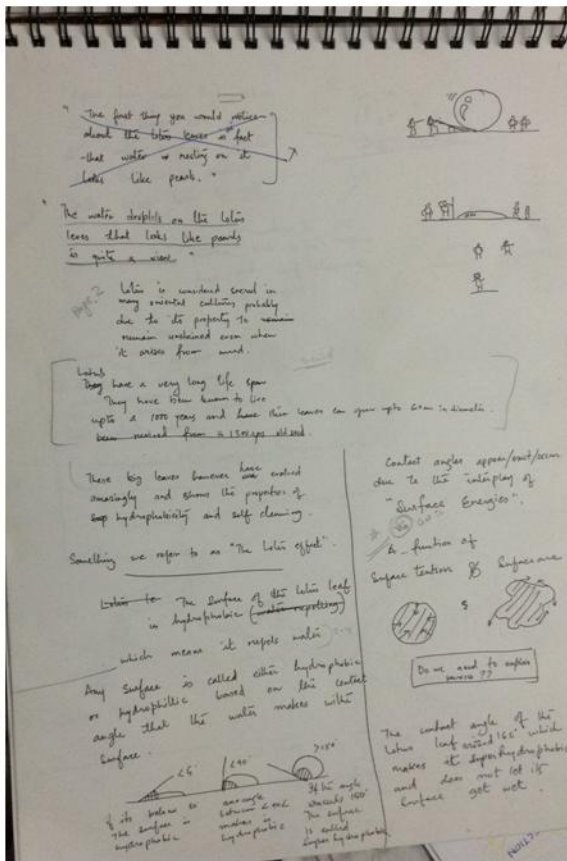 " The first thing you would notice
about the lotus leaves is fact
that water is resting on it
looks like pearls. "
" The water droplets on the lotus
leves that looks like pearls
is quite a "
Page 2
Lotus is considered sacred in
many oriental cultures probably
due to its property to remain
remain unstained even when
it arises from mud.
Lotus
They have a very long life span
They have been known to live
upto a 1000 years and have their leaves can grow upto 60cm in diameter.
been revived from a 1300yrs old seed.
These big leaves however have evolved
amasingly and shows the properties of
hydrophobicity and self cleaning.
Something we refer to as "The Lotus effect".
Lotus le The Surface of the lotus leaf
is hydrophobic (water repelling)
which means it repels water
Any Surface is called either hydrophobic
or hydrophillic based on the contact
angle that the water makes with
Surface.
<90°
>150°
if its below
The surface is
angle
between
makes it
hydrophobic
If the angle
exceeds 150°
The surface
is called
super hydrophobic
Contact angles appear/exist/occur
due to the interplay of
"Surface Energies".
function of
Surface tension & Surface area
&
Do we need to explain
??
The contact angle of the
lotus leaf around 160° which
makes it superhydrophobic
and does not let its
surface get wet.